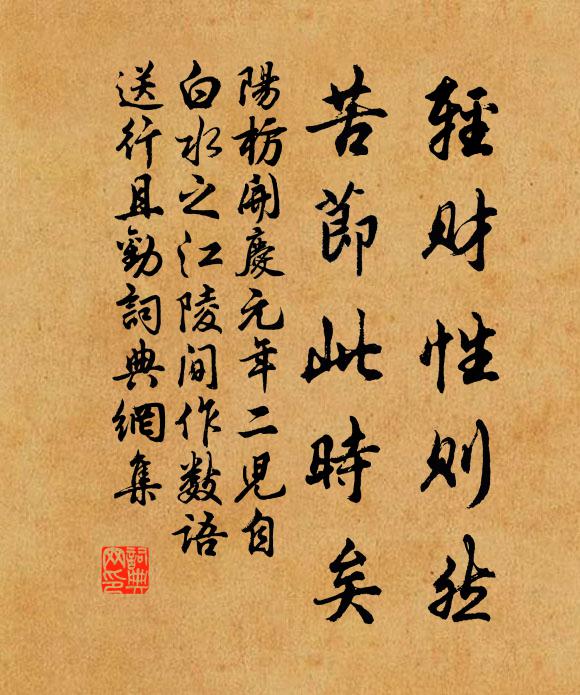 輕財性則然
苦節此時矣
陽枋開慶元年二児自
白水之江陵间作數语
送行且勸詞典網集
詞典
网印